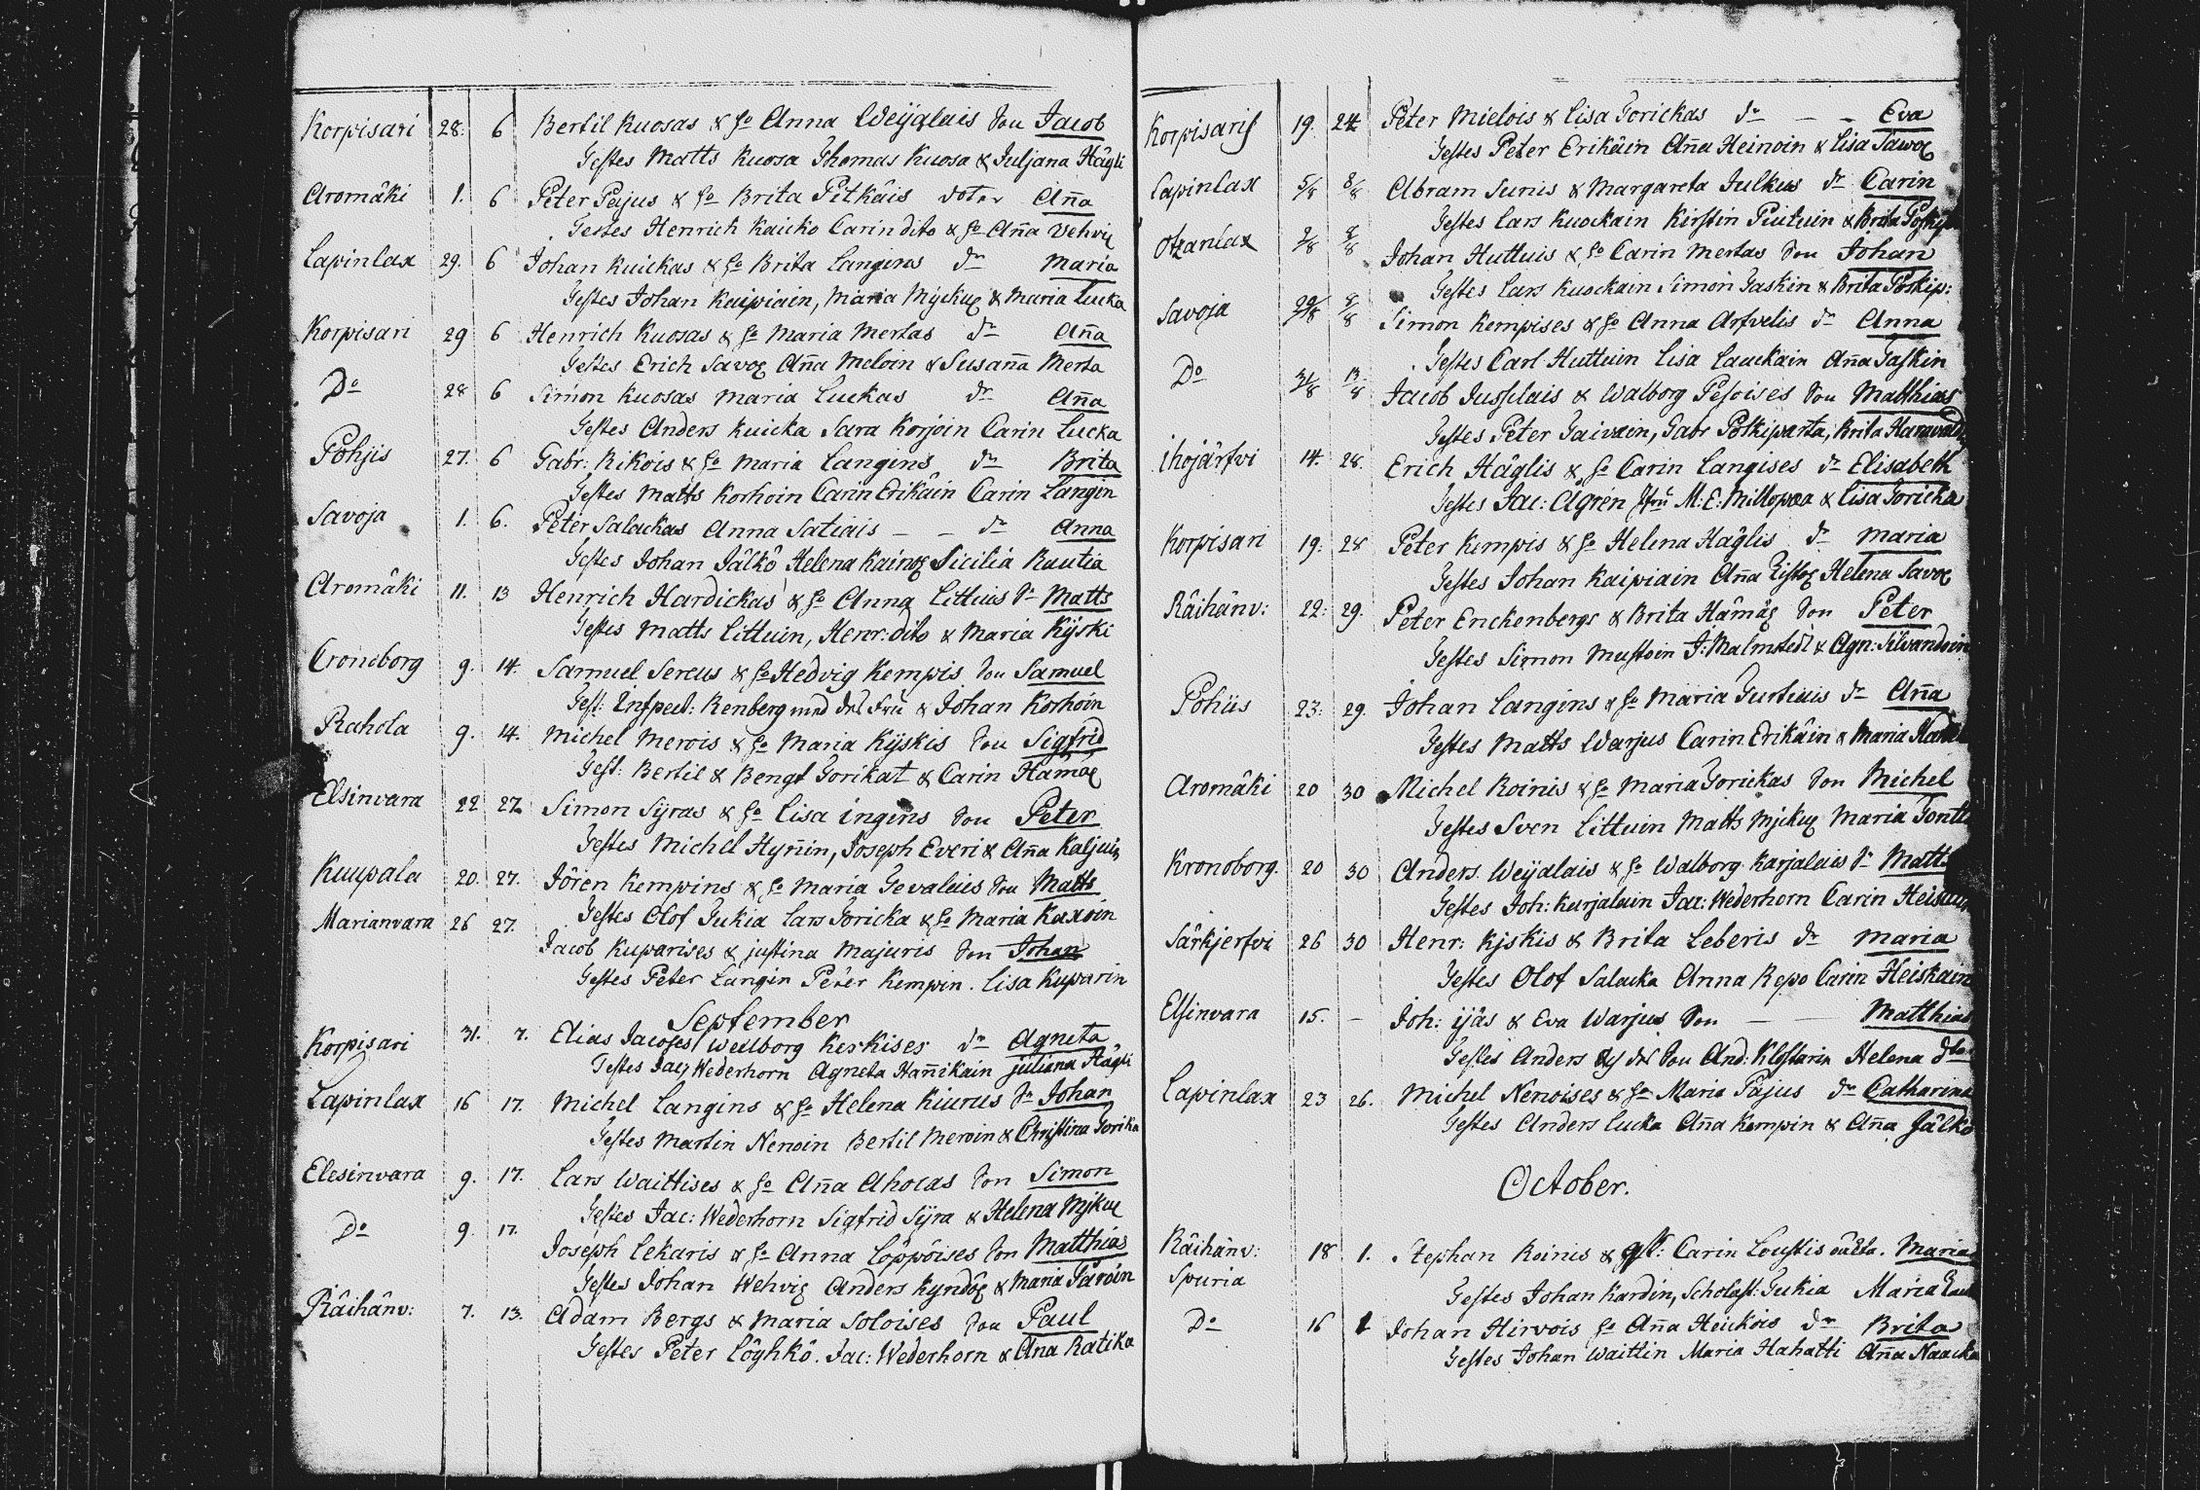 Korpisari 28. 6 Bertil Kuosas & h:o Anna Weijalais Son Jacob
Testes Matts Kuosa Thomas Kuosa & Juljana Hägli
Aromäki 1. 6 Peter Pajus & h:o Brita Pitkäis doter Aña
Testes Henrich Kaicko Carin dito & h:o Aña Vehvi
Lapinlax 29. 6 Johan Kuickas & h:o Brita Langins dr Maria
Testes Johan Kaipiain, Maria Mycky & Maria Lucka
Korpisari 29 6 Henrich Kuosas & h:o Maria Mertas dr Aña
Testes Erich Savo Aña Meloin & Susaña Merta
Do 28 6 Simon Kuosas Maria Luckas dr Aña
Testes Anders Kuicka Sara Korjoin Carin Lucka
Pohjis 27. 6 Gabr: Rikois & h:o Maria Langins dr Brita
Testes Matts Korhoin Carin Erikäin Carin Langin
Savoja 1. 6. Peter Salackas Anna Satiais – – dr Anna
Testes Johan Jälkö Helena Kain Sicilia Rautia
Aromäki 11. 13 Henrich Hardickas & h:o Anna Littuis Sn Matts
Testes Matts Littuin, Henr: dito & Maria Kyski
Croneborg 9. 14. Samuel Sercus & h:o Hedvig Kempis Son Samuel
Test: Inspect: Renberg med des Fru & Johan Korhoin
Rahola 9. 14. Michel Merois & h:o Maria Kyskis Son Sigfrid
Test: Bertil & Bengt Torikat & Carin Hämä
Elsinvara 22 27. Simon Syras & h:o Lisa ingins Son Peter
Testes Michel Hyñin, Joseph Everi & Aña Kaljuin
Kuupala 20. 27. Jören Kempins & h:o Maria Tevalais Son Matts
Testes Olof Tukia Lars Toricka & h:o Maria Kaxoin
Marianvara 26 27. Jacob Kuparises & justina Majuris Son Johan
Testes Peter Langin Peter Kempin. Lisa Kuparin
September
Korpisari 31. 7. Elias Jacoses Wallborg Kerkises dr Agneta
Testes Jac: Wederhorn Agneta Hañikain juliana Hägli
Lapinlax 16 17. Michel Langins & h:o Helena Kiurus Sn Johan
Testes Martin Nenoin Bertil Meroin & Christina Torika
Elesinvara 9. 17. Lars Waittises & h:o Aña Ahocas Son Simon
Testes Jac: Wederhorn Sigfrid Syra & Helena Myku
Do 9. 17. Joseph Lekaris & h:o Anna Löppöises Son Matthias
Testes Johan Wehvi Anders Kyndö & Maria Täroin
Räihänv: 7. 13. Adam Bergs & Maria Soloises Son Paul
Testes Peter Löyhkö. Jac: Wederhorn & Ana Ratika
Korpisari 19. 24 Peter Mielois & Lisa Torickas dr – – Eva
Testes Peter Erikäin Aña Heinoin & Lisa Savo
Lapinlax 5/8 8/8 Abram Sunis & Margareta Julkus dr Carin
Testes Lars Kuockain Kirstin Piutuin & Brita
Otzanlax 2/8 8/8 Johan Huttuis & h:o Carin Mertas Son Johan
Testes Lars Kuockain Simon Taskin & Brita Poskip:
Savoja 29/8 Simon Kempises & h:o Anna Arfvelis dr Anna
Testes Carl Huttuin Lisa Lauckain Aña Taskin
Do 31/8 13/8 Jacob Jusslais & Walborg Pesoises Son Matthias
Testes Peter Taivain, Gabr Potkiparta, Brita
ihojärfvi 14. 28. Erich Häglis & h:o Carin Langises dr Elisabeth
Testes Jac: Agren Jfru M: E: Millopæa & Lisa Toricka
Korpisari 19: 28 Peter Kempis & h:o Helena Häglis dr Maria
Testes Johan Kaipiain Aña Helena Savo
Räihänv: 22: 29. Peter Enckenbergs & Brita Hämä Son Peter
Testes Simon Mustoin J: Malmstedt & Agn: Silvandrin
Pohiis 23: 29. Johan Langins & h:o Maria Turtiais dr Aña
Testes Matts Warjus Carin Erikäin & Maria
Aromäki 20 30 Michel Roinis & h:o Maria Torickas Son Michel
Testes Sven Littuin Matts Myku Maria Tontt
Kronoborg. 20 30 Anders Weijalais & h:o Walborg Karjalais Sn Matt
Testes Joh: Karjalain Jac: Wederhorn Carin
Särkjerfvi 26 30 Henr: Kjskis & Brita Leberis dr Maria
Testes Olof Salacka Anna Repo Carin Heiskain
Elsinvara 15. – Joh: ijäs & Eva Warjus Son – – Matthias
Testes Anders des Son And: Helena
Lapinlax 23 26. Michel Nenoises & h:o Maria Pajus dr Catharina
Testes Anders Lucka Aña Kempin & Aña Jälkö
October.
Räihänv: 18 1. Stephan Roinis & qst: Carin Loustis oäcta. Maria
Spuria Testes Johan Kardin, Scholast: Tukia Maria
Do 16 1 Johan Hirvois h:o Aña Heickois dr Brita
Testes Johan Waittin Maria Hahatti Aña Naacka